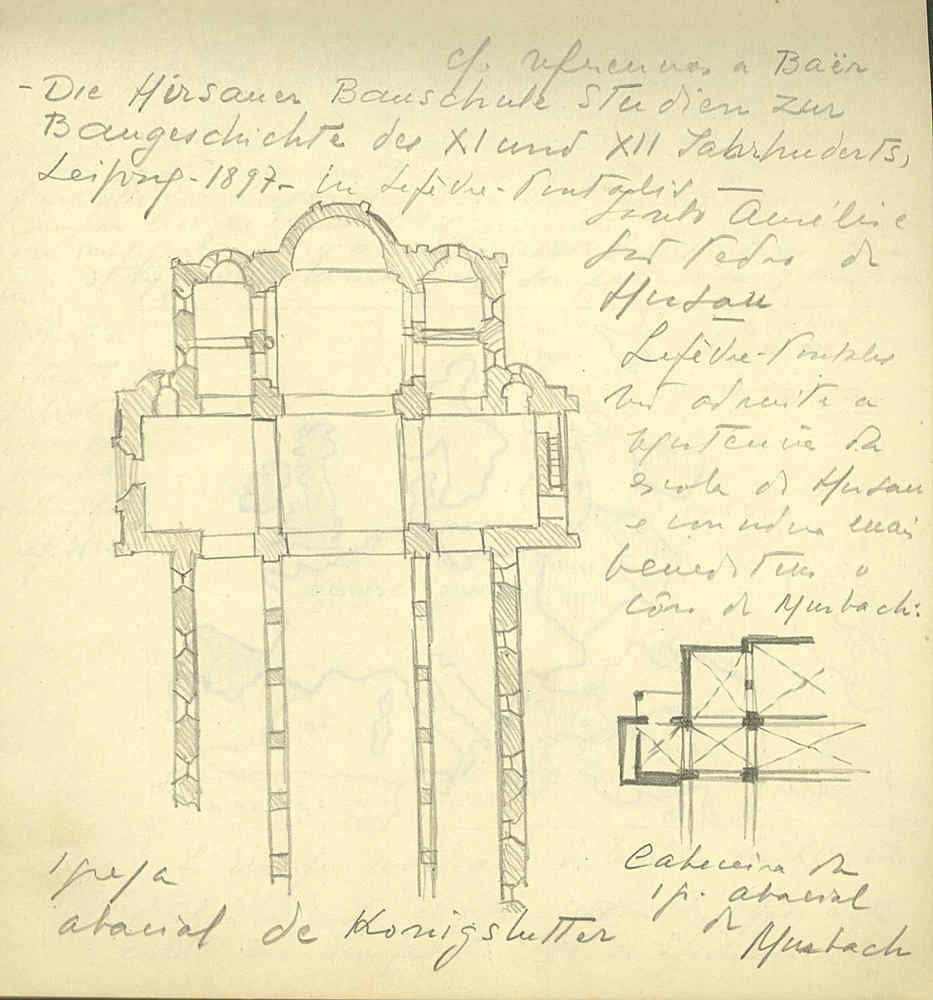 cf. referencias a Baër
- Die Hirsauer Bauschule Studien zur
Baugeschichte des XI und XII Jahrhuderts,
Leipzig - 1897 - in Lefèvre-Pontalis -
Aurélio e
São Pedro de
Hirsau
Lefèvre-Pontalis
não admite a
existencia da
escola de Hirsau
e considera mais
beneditino o
côro de Murbach:
Igreja
abacial de Konigslutter
Cabeceira da
ig. abacial
de
Murbach